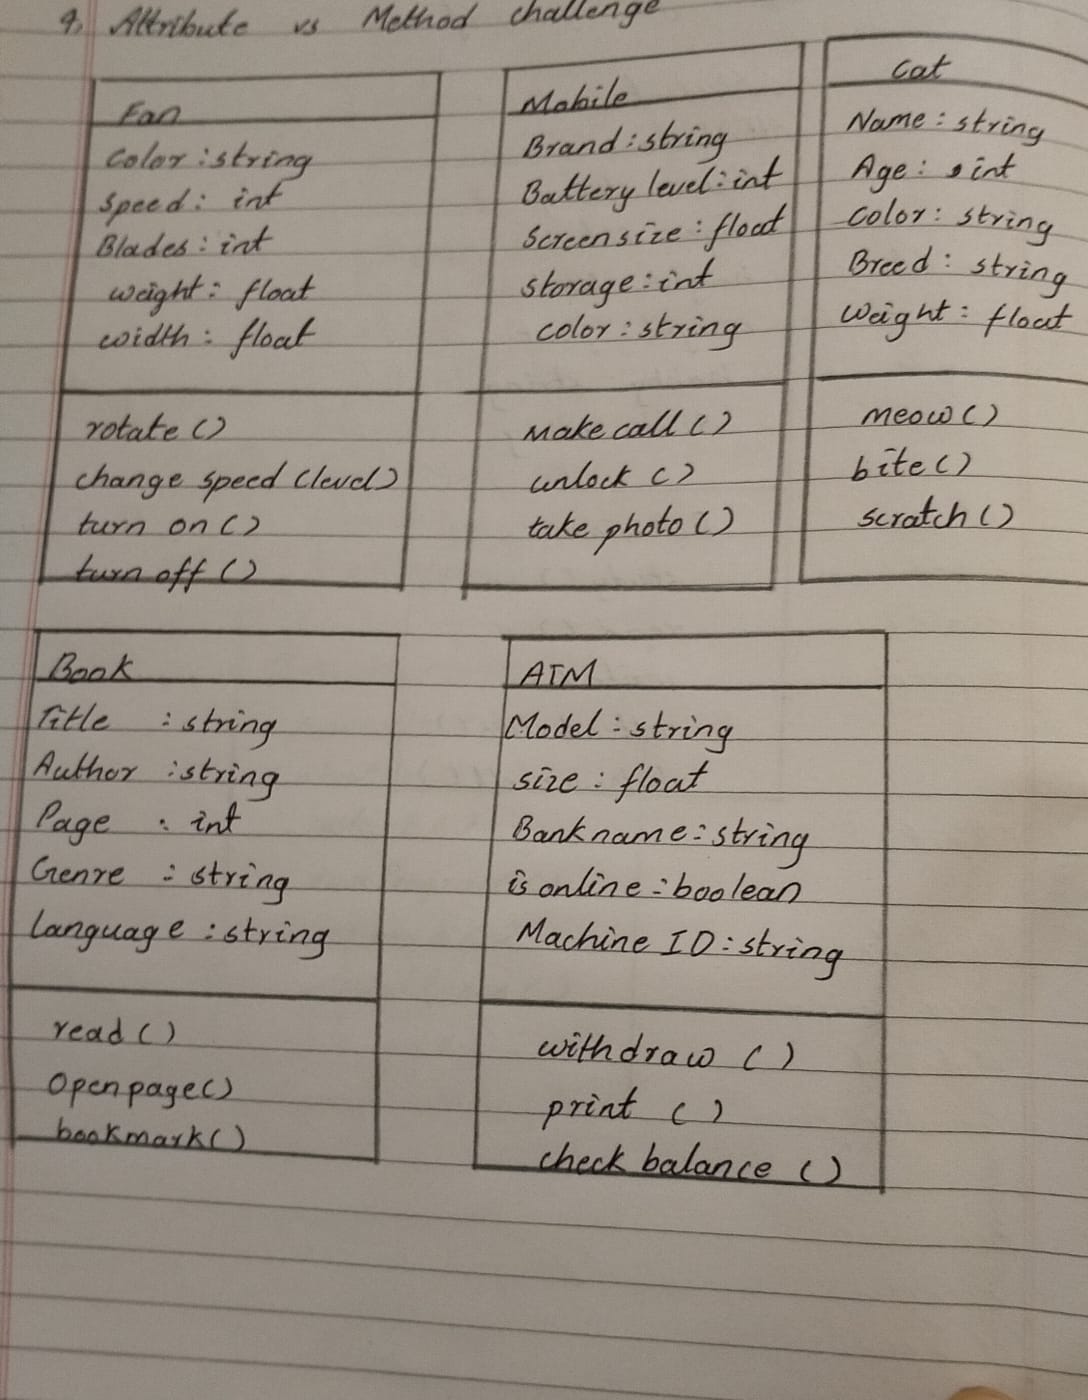 9. Attribute vs Method challenge
Fan
color : string
speed : int
Blades : int
weight : float
width : float
rotate ()
change speed (level)
turn on ()
turn off ()
Mobile
Brand : string
Battery level : int
Screen size : float
storage : int
color : string
Make call ()
unlock ()
take photo ()
Cat
Name : string
Age : int
color : string
Breed : string
weight : float
meow ()
bite ()
scratch ()
Book
Title : string
Author : string
Page : int
Genre : string
language : string
read ()
Open page ()
bookmark ()
ATM
Model : string
size : float
Bank name : string
is online : boolean
Machine ID : string
withdraw ()
print ()
check balance ()